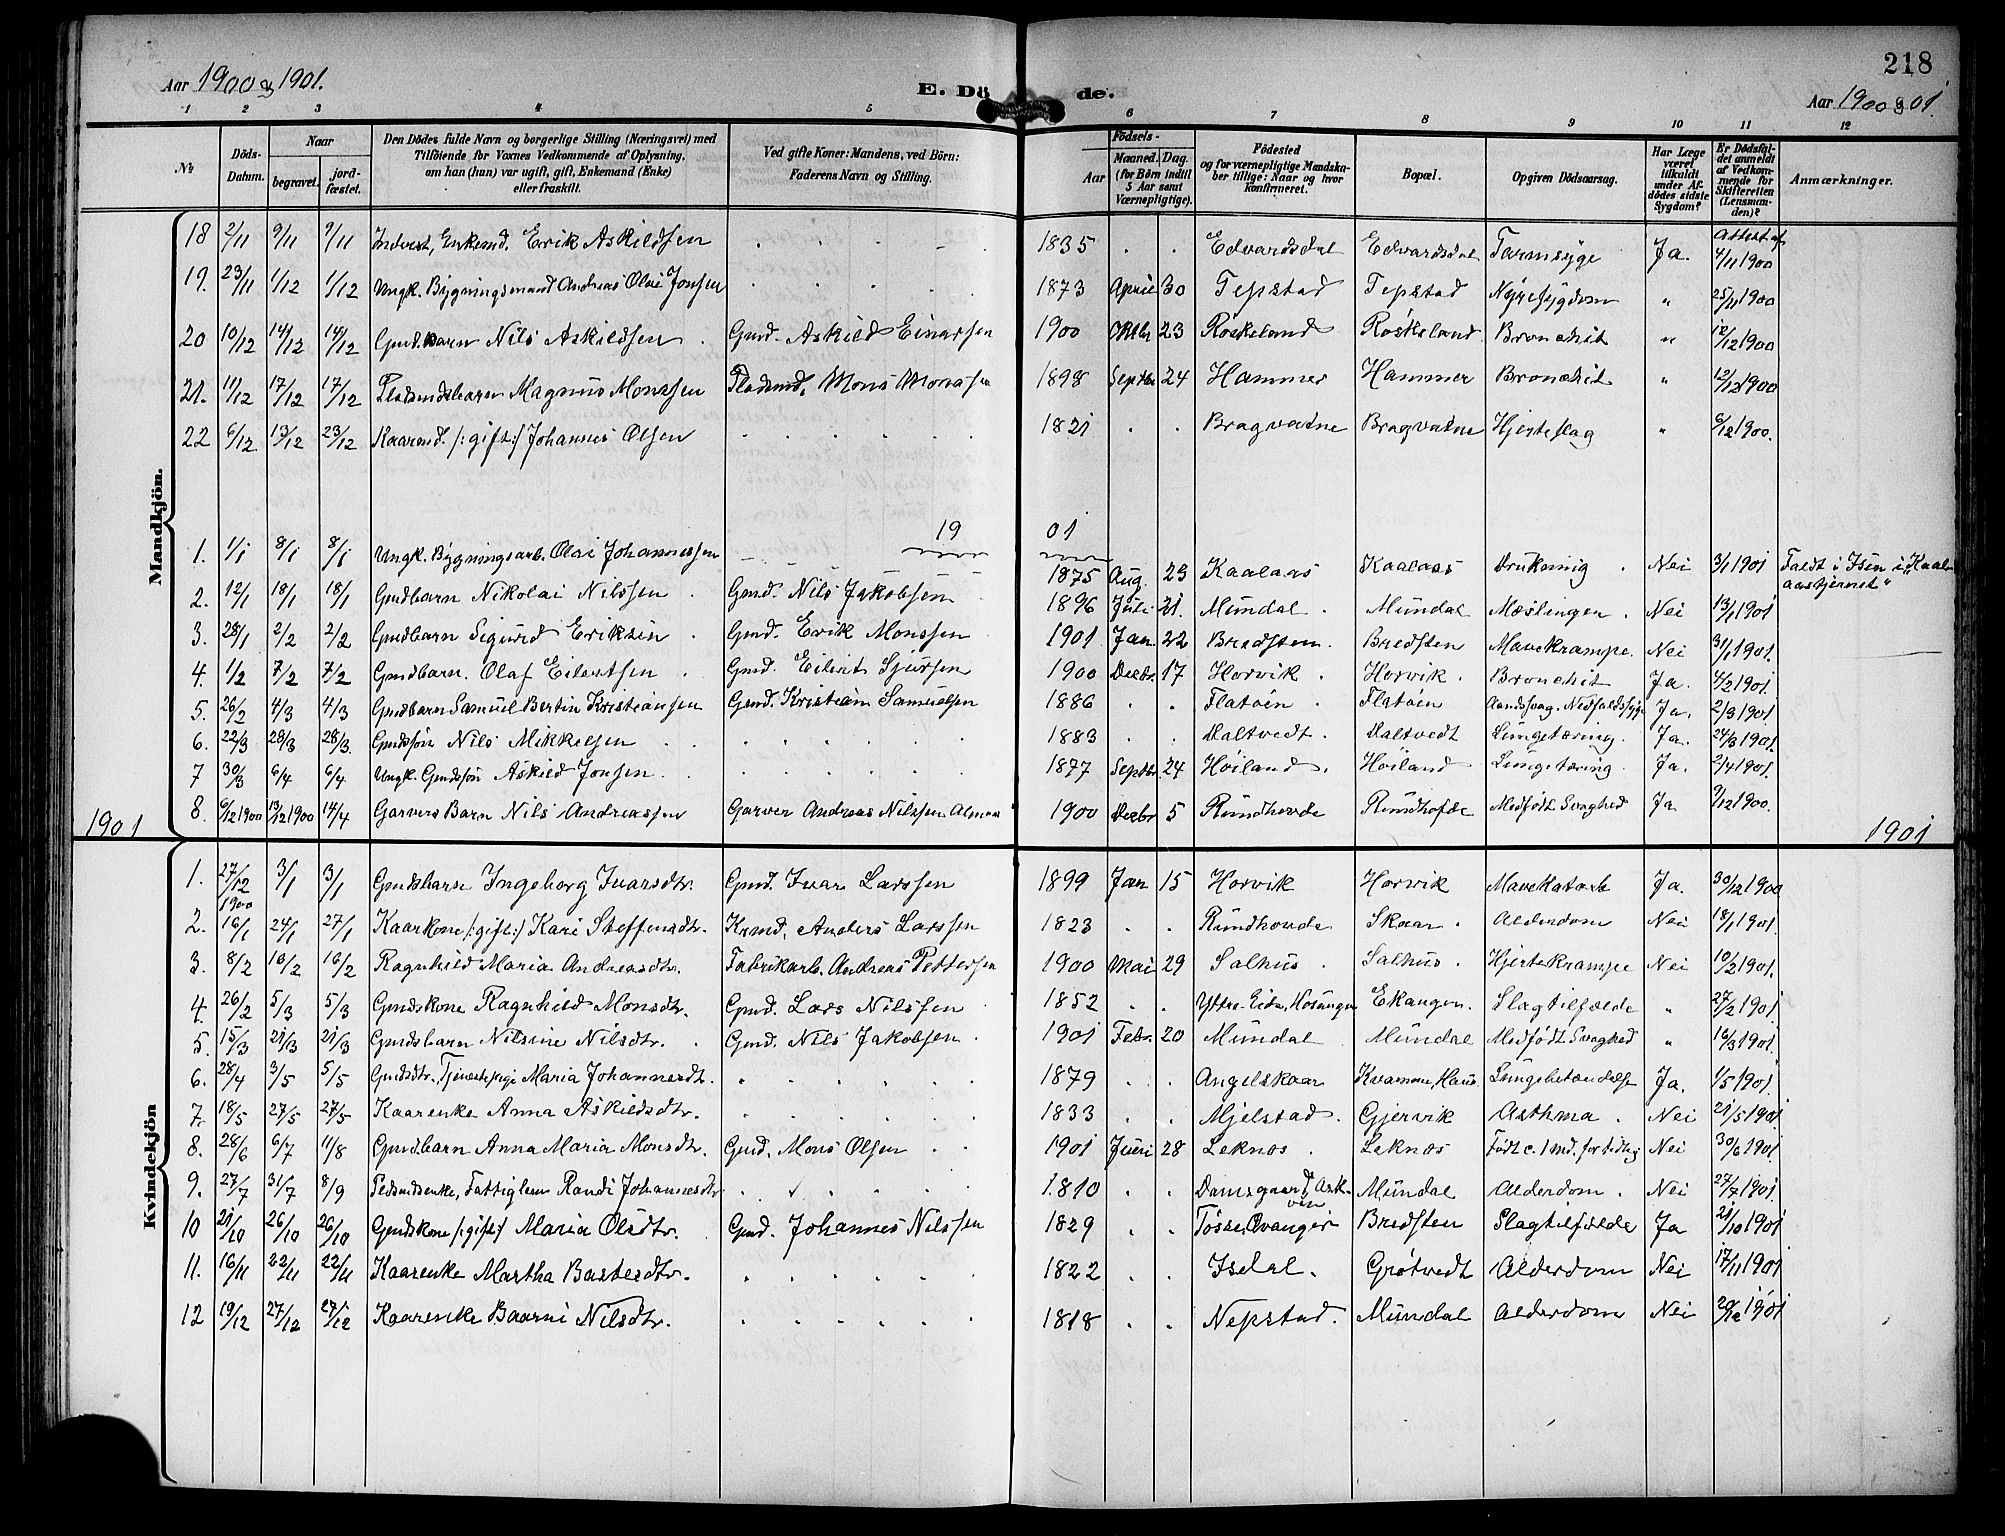 218
Aar 1900 og 1901.
E. Döde.
Aar 1900 og 01
1 2 3 4 5 6 7 8 9 10 11 12
No
Döds-Datum.
Naar
begravet.
jord-fæstet.
Den Dödes fulde Navn og borgerlige Stilling (Næringsvei) med
Tilföiende for Voxnes Vedkommende af Oplysning,
om han (hun) var ugift, gift, Enkemand (Enke)
eller fraskilt.
Ved gifte Koner: Mandens, ved Börn:
Faderens Navn og Stilling.
Födsels-
Aar
Maaned. Dag.
(for Börn indtil
5 Aar samt
Værnepligtige).
Födested
og for værnepligtige Mandska-
ber tillige: Naar og hvor
Konfirmeret.
Bopæl.
Opgiven Dödsaarsag.
Har Læge
været
tilkaldt
under Af-
dödes sidste
Sygdom?
Er Dödsfal-
det anmeldt
af Vedkom-
mende for
Skifteretten
(Lensman-
den)?
Anmærkninger.
Mandkjön.
18 2/11 9/11 9/11 Inderst, Enkemd. Erik Askildsen 1835 Edvardsdal Edvardsdal Tarmsyge Ja. Attest af 4/11 1900
19. 23/11 1/12 1/12 Ungk. Bygningsmand Andreas Olai Jonsen 1873 April 30 Tepstad Tepstad Nyresygdom " 25/11 1900
20 10/12 14/12 14/12 Gmd.barn Nils Askildsen Gmd. Askild Einarsen 1900 Oktbr 23 Röskeland Röskeland Bronchit " 12/12 1900
21. 11/12 17/12 17/12 Pladsmdsbarn Magnus Monssen Pladsmd. Mons Monssen 1898 Septbr 24 Hammer Hammer Bronchit " 12/12 1900
22 6/12 13/12 23/12 Kaarmd. /:gift:/ Johannes Olsen 1821 Bragvatne Bragvatne Hjerteslag " 6/12 1900.
19 01
1. 1/1 8/1 8/1 Ungk. Bygningsarb. Olai Johannessen 1875 Aug. 23 Kaalaas Kaalaas Drukning Nei 3/1 1901 Faldt i Isen i "Kaal-
aastjernet"
2. 12/1 18/1 18/1 Gmdbarn Nikolai Nilssen Gmd. Nils Jakobsen 1896 Juli 21. Mundal Mundal Mæslinger. Nei 13/1 1901
3. 28/1 2/2 2/2 Gmdbarn Sigurd Eriksen Gmd. Erik Monssen 1901 Jan 22 Bredsten. Bredsten Mavekrampe. Nei 31/1 1901.
4. 1/2 7/2 7/2 Gmdbarn. Olaf Eilertsen Gmd. Eilert Sjursen 1900 Decbr. 17 Horvik Horvik. Bronchit Ja. 4/2 1901.
5. 26/2 4/3 4/3 Gmdbarn Samuel Bertin Kristiansen Gmd. Kristian Samuelsen 1886 Flatöen Flatöen Aandsvag. Nedfaldssyge Ja. 2/3 1901
6. 22/3 28/3 28/3. Gmdssön Nils Mikkelsen 1883 Daltvedt. Daltvedt Lungetæring. Ja. 24/3 1901
7 30/3 6/4 6/4 Ungk. Gmdssön Askild Jonsen 1877 Septbr. 24 Höiland. Höiland Lungetæring Ja. 2/4 1901.
8. 6/12 1900 13/12 1900 14/4 Garvers Barn Nils Andreassen Garver Andreas Nilssen 1900 Decbr 5 Rundhovde Rundhofde Medfödt Svaghed Ja. 9/12 1900.
1901
1901
Kvindekjön
1. 27/12 1900 3/1 3/1 Gmdsbarn Ingeborg Ivarsdtr. Gmd. Ivar Larssen 1899 Jan 15 Horvik Horvik Mavekatarh Ja. 30/12 1900
2. 16/1 24/1 27/1 Kaarkone /:gift:/ Kari Steffensdtr. Krmd. Anders Larssen 1823 Rundhovde Skaar. Alderdom Nei 18/1 1901.
3. 8/2 16/2 16/2 Ragnhild Maria Andreasdtr. Fabrikarb. Andreas Pettersen 1900 Mai 29 Salhus. Salhus. Hjertekrampe Nei 10/2 1901.
4. 26/2 5/3 5/3 Gmdskone Ragnhild Monsdtr. Gmd. Lars Nilssen 1852 Yttre-Eide, Hosanger Ekangen. Slagtilfælde " 27/2 1901
5. 15/3 21/3 21/3 Gmdsbarn Nilsine Nilsdtr. Gmd. Nils Jakobsen 1901 Febr. 20 Mundal Mundal Medfödt Svaghed " 16/3 1901
6. 28/4 3/5 5/5 Gmdsdtr. Tjenestepige Maria Johannesdtr. 1879 Angelskaar Kvamme, Haus Lungebetændelse Ja. 1/5 1901
7. 18/5 27/5 27/5 Kaarenke Anna Askildsdtr. 1833 Mjelstad. Gjervik Asthma. Nei 21/5 1901
8. 28/6 6/7 11/8 Gmdbarn Anna Maria Monsdtr. Gmd. Mons Olsen 1901 Juni 28 Leknes Leknes Födt c. 1 md. for tidlig Nei 30/6 1901
9. 27/7 31/7 8/9 Pldsmdsenke, Fattiglem Randi Johannesdtr 1810 Damsgaard, Ask-
vin Mundal Alderdom. Nei 27/7 1901
10 21/10 26/10 26/10 Gmdskone /:gift:/ Maria Olsdtr. Gmd. Johannes Nilssen 1829 Tösse, Ovanger Bredsten Slagtilfælde Ja 21/10 1901
11. 16/11 22/11 22/11 Kaarenke Martha Bastesdtr. 1822 Isdal. Grötvedt Alderdom Nei 17/11 1901
12 19/12 27/12 27/12 Kaarenke Baarni Nilsdtr. 1818 Nepstad. Mundal Alderdom Nei 20/12 1901